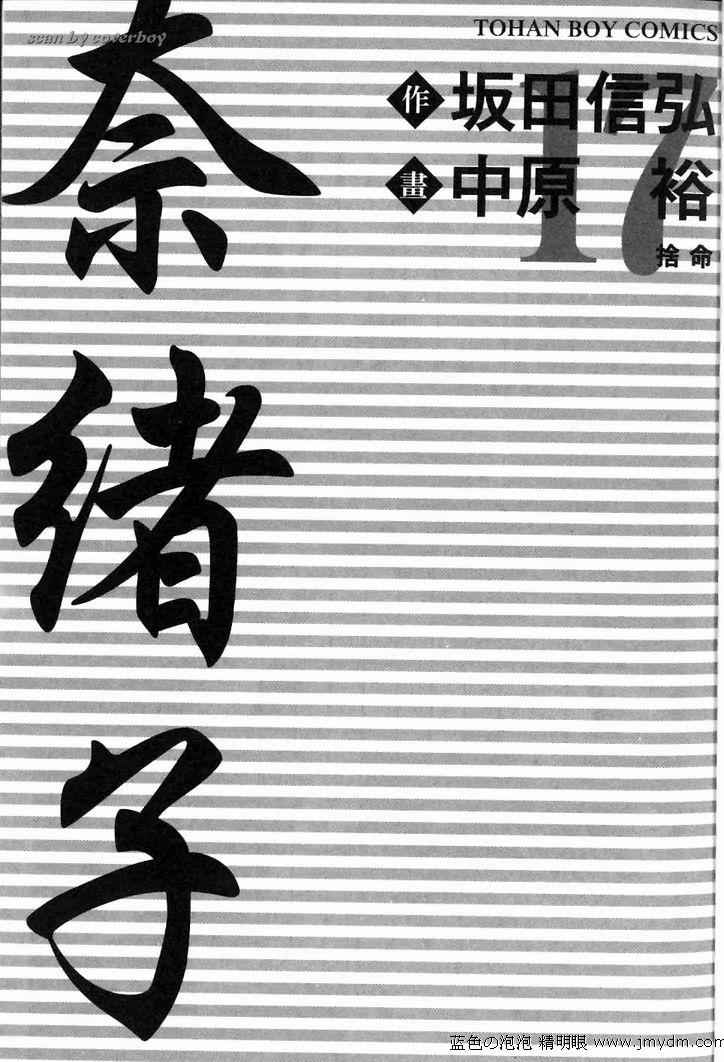 scan by coverboy
TOHAN BOY COMICS
作 坂田信弘
畫 中原 裕
17
捨命
奈緒子
蓝色の泡泡 精明眼 www.jmydm.com